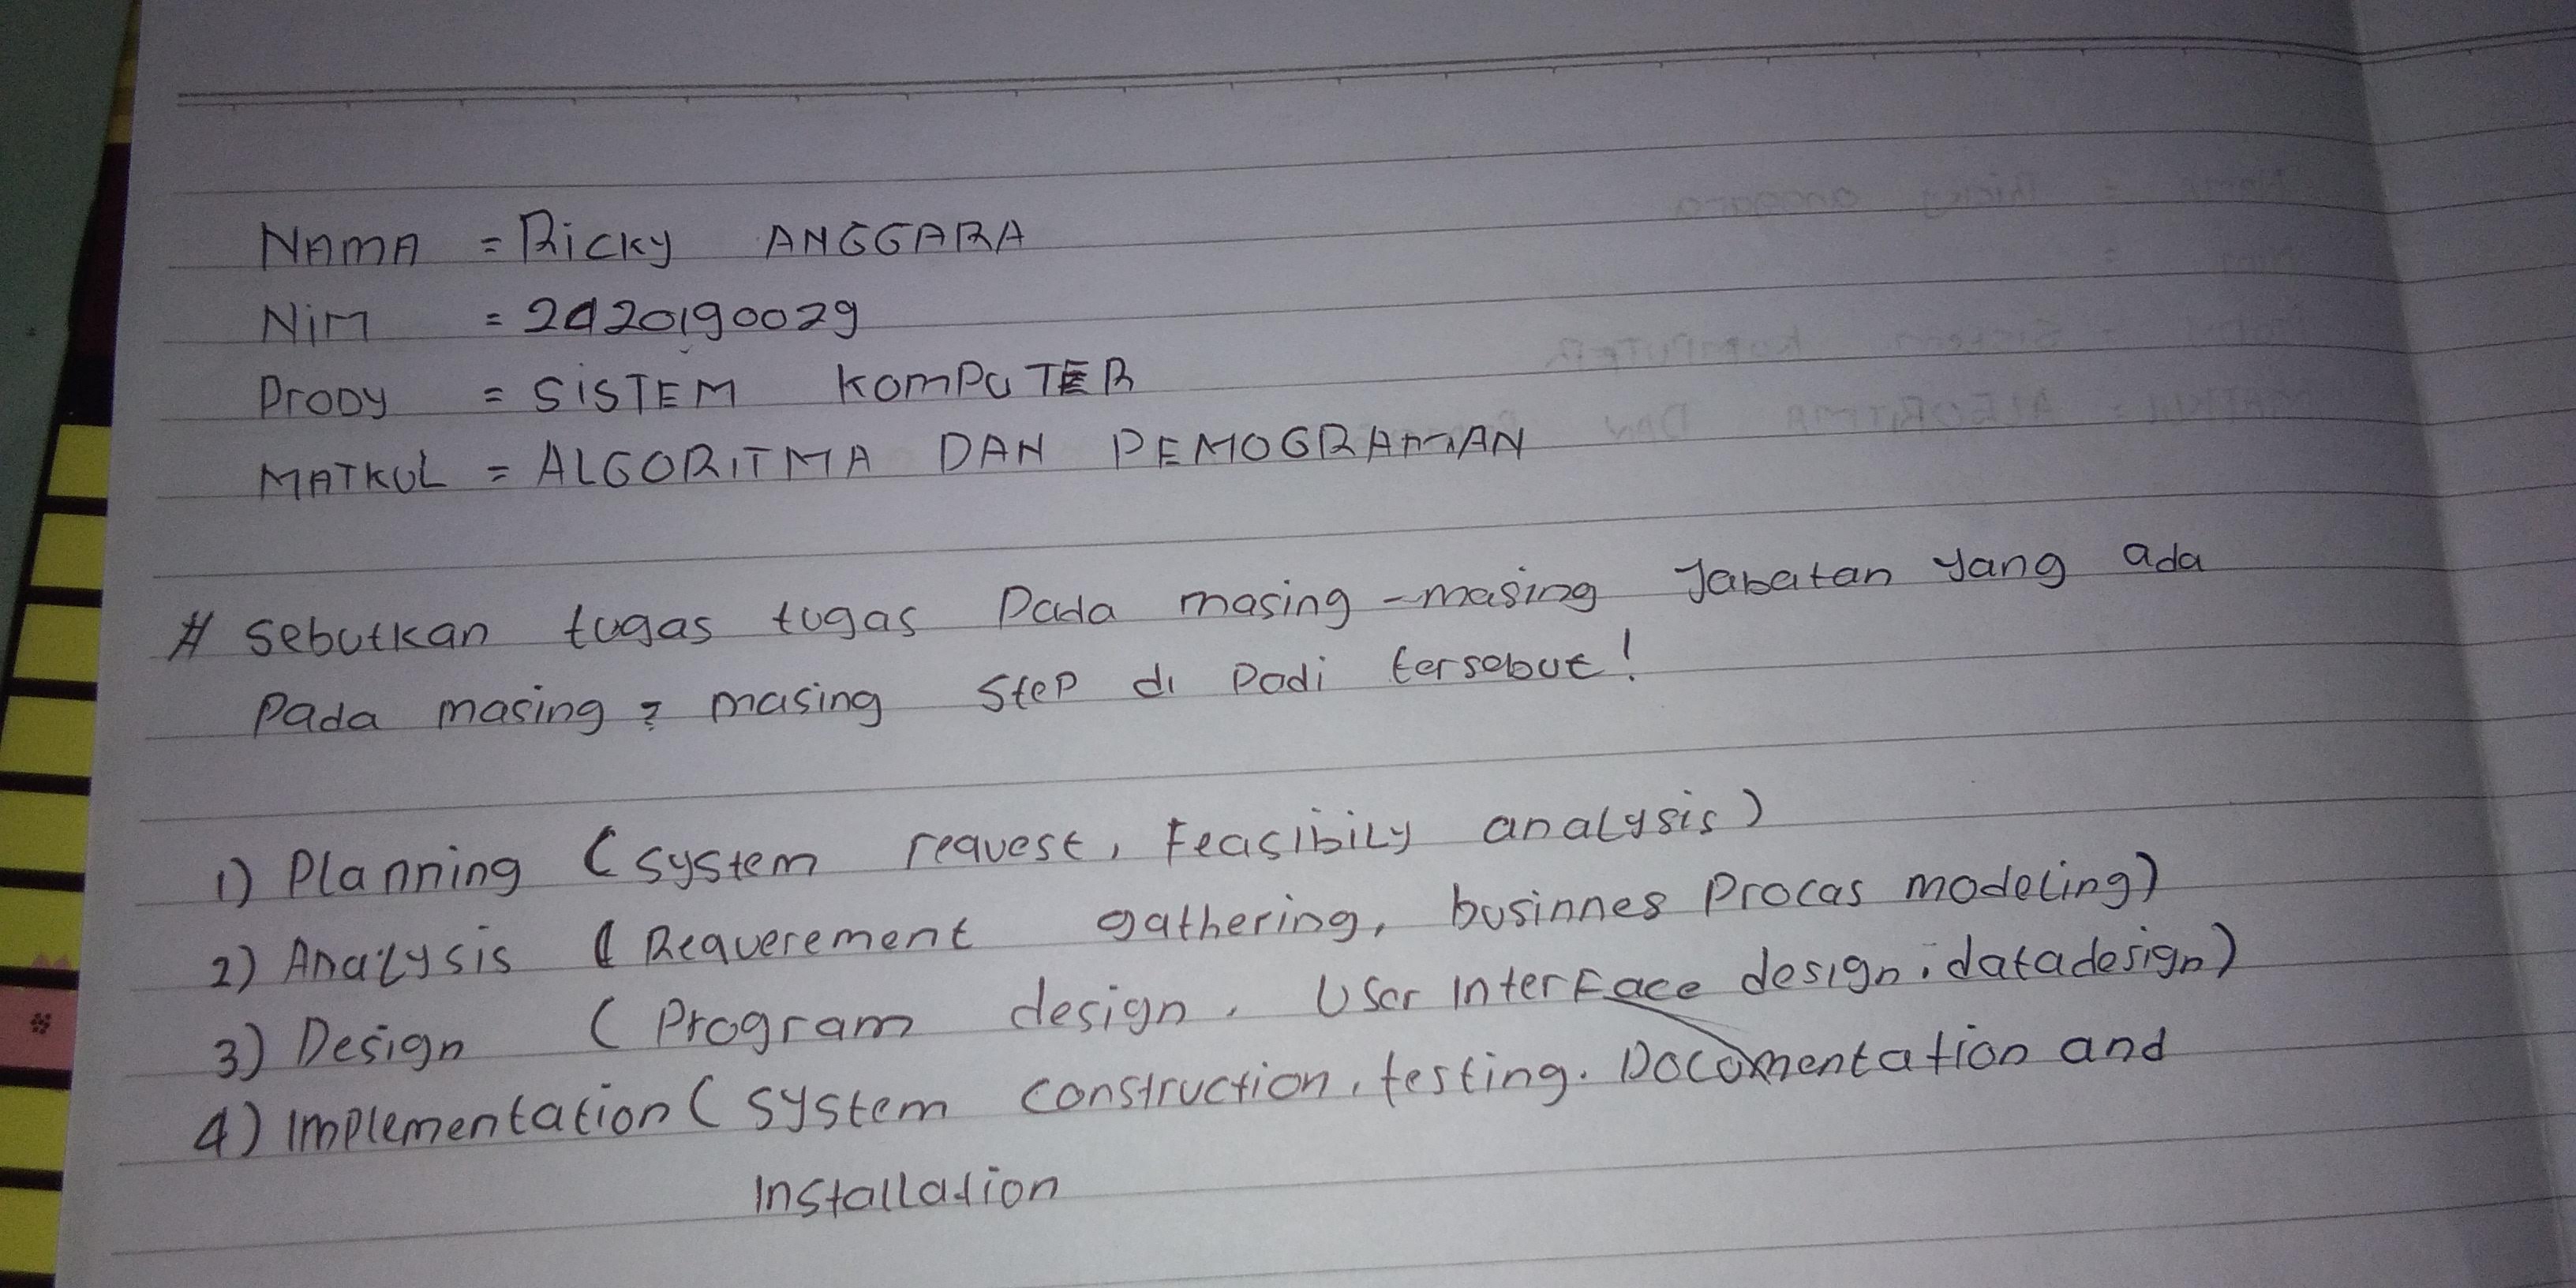 NAMA = Ricky ANGGARA
NiM = 2420190029
Prody = SiSTEM KOMPUTER
MATKUL = ALGORITMA DAN PEMOGRAMAN
# Sebutkan tugas tugas Pada masing-masing Jabatan yang ada
Pada masing-masing Step di Padi tersebut!
1) Planning (System request, Feasibily analysis)
2) Analysis (Requerement gathering, businnes Procas modeling)
3) Design (Program design, User Interface design, datadesign)
4) Implementation (System construction, testing. Documentation and
Installation